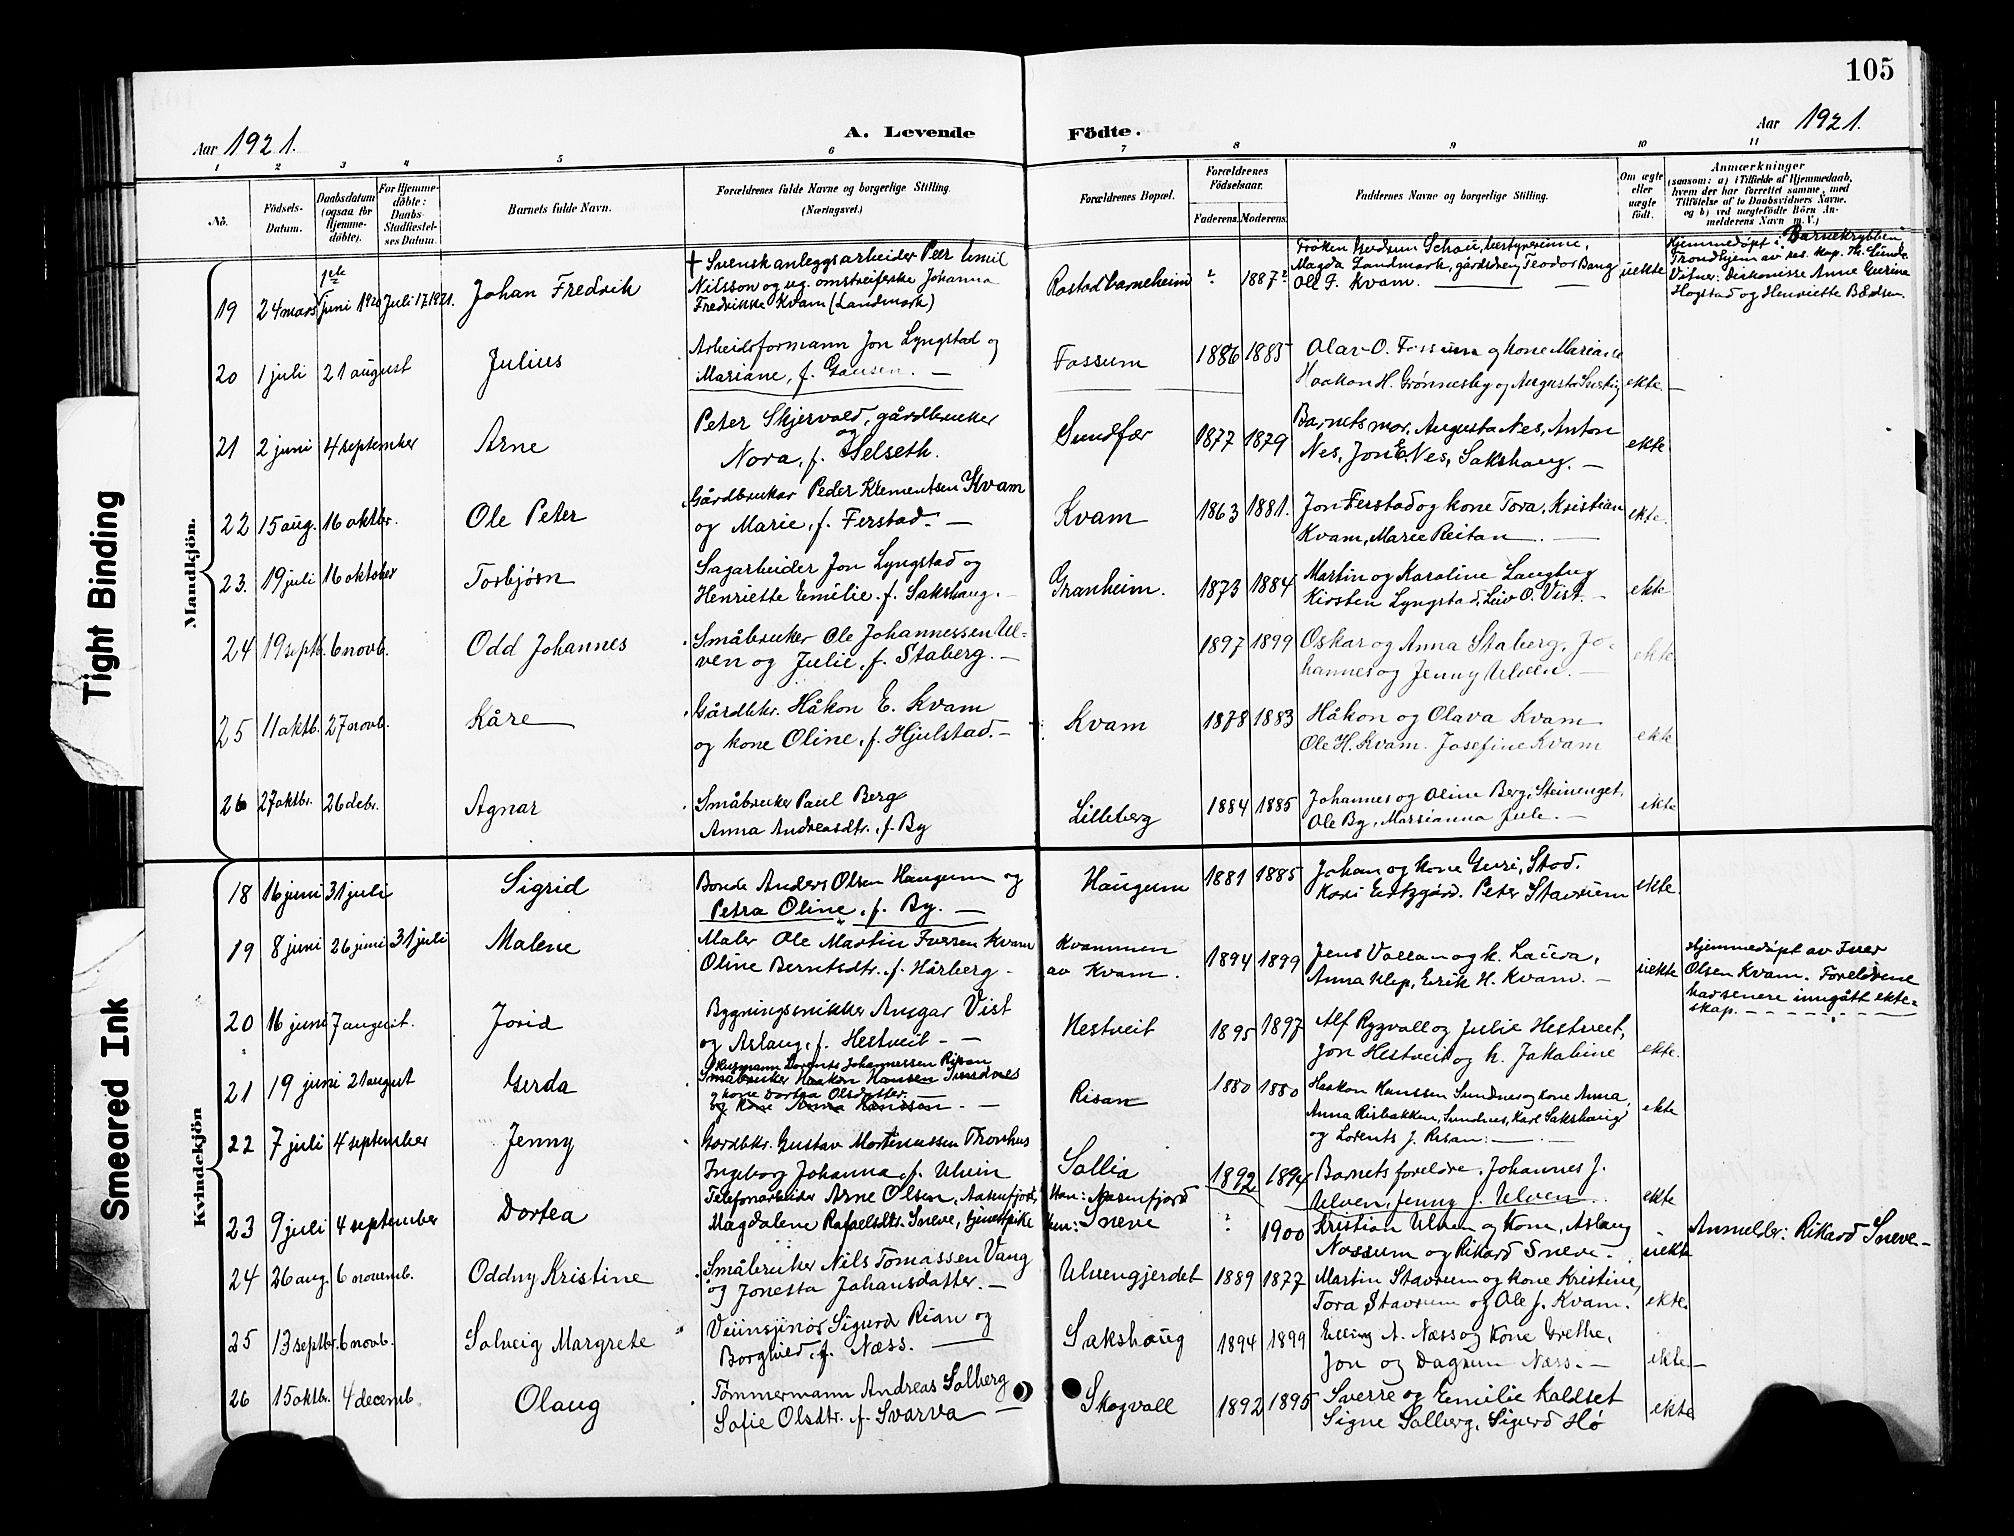 105
Aar 1921.
A. Levende
Födte.
Aar 1921.
1 2 3 4 5 6 7 8 9 10 11
No.
Födsels-Datum.
Daabsdatum (ogsaa for Hjemmedöbte).
For Hjemmedöbte: Daabs-Stadfæstelses Datum.
Barnets fulde Navn.
Forældrenes fulde Navne og borgerlige Stilling.
(Næringsvei.)
Forældrenes Bopæl.
Forældrenes Födselsaar.
Faderens. Moderens.
Faddernes Navne og borgerlige Stilling.
Om ægte eller uægte födt.
Anmærkninger
(saasom: a) i Tilfælde af Hjemmedaab,
hvem der har forrettet samme, med
Tilföielse af to Daabsvidners Navne,
og b) ved uægtefödte Börn Anmelderens Navn m. V.)
Mandkjön.
19 24 mars 1ste juni 1920 Juli 17. 1921. Johan Fredrik
† Svensk anleggsarbeider Peer Emil
Nilsson og ug. omstreiferske Johanna
Fredrikke Kvam (Landmark)
Rostad barneheim ? 1887?
Frøken Gudrun Schou, bestyrerinne,
Magda Landmark, gårdsdreng Teodor Bang
Ole F. Kvam.
uekte
Hjemmedøpt i Barnekrybben
Trondhjem av res. kap. Th. Lunde
Vitner: Diakonisse Anne Gurine
Hogstad og Henriette
20 1 juli 21 august Julius
Arbeidsformann Jon Lyngstad og
Mariane, f. Gausen.
Fossum 1886 1885
Olav O. Fossum og kone Mariane
Haakon H. Grønnesby og Augusta
ekte
21 2 juni 4 september Arne
Peter Skjervold, gårdbruker
og
Nora, f. Selseth.
Sundfær 1877 1879
Barnets mor, Augusta Nes, Anton
Nes, Jon E. Nes, Sakshaug.
ekte
22 15 aug. 16 oktbr. Ole Peter
Gårdbruker Peder Klementsen Kvam
og Marie, f. Ferstad.
Kvam 1863 1881.
Jon Ferstad og kone Tora, Kristian
Kvam, Marie Reitan.
ekte.
23. 19 juli 16 oktober Torbjørn
Sagarbeider Jon Lyngstad og
Henriette Emilie. f. Sakshaug.
Granheim. 1873 1884
Martin og Karoline Langby
Kirsten Lyngstad, Liv O. Vist.
ekte
24 19 septb. 6 novb. Odd Johannes
Småbruker Ole Johannessen Ul-
ven og Julie, f. Staberg.
1897 1899
Oskar og Anna Staberg, Jo-
hannes og Jenny Ulven.
ekte
25 11 oktb. 27 novb. Kåre
Gårdbkr. Håkon E. Kvam
og kone Oline, f. Hjulstad.
Kvam 1878 1883
Håkon og Olava Kvam
Ole H. Kvam. Josefine Kvam
ekte
26 27 oktbr. 26 debr. Agnar
Småbruker Paul Berg
Anna Andreasdtr. f. By
Lilleberg 1884 1885
Johannes og Oline Berg, Steinenget,
Ole By, Marsianna Jule.
ekte
Kvindekjön
18 16 juni 31 juli Sigrid
Bonde Anders Olsen Haugum og
Petra Oline, f. By.
Haugum 1881 1885
Johan og kone Guri, Stod.
Kari Ertzgård. Peter Stavrum
ekte.
19 8 juni 26 juni 31 juli Malene
Maler Ole Martin Iversen Kvam
Oline Berntsdtr. f. Hårberg
Kvammen
av Kvam. 1894 1899
Jens Vollan og k. Laura,
Anna Klep, Eirik H. Kvam.
uekte
Hjemmedøpt av Iver
Olsen Kvam. Foreldrene
har senere inngått ekte-
skap.
20 16 juni 7 august. Jorid
Bygningssnikker Ansgar Vist
og Aslaug, f. Hestveit
Hestveit 1895 1897
Alf Rygvoll og Julie Hestveit,
Jon Hestveit og k. Jakobine
ekte.
21 19 juni 21 august Gerda
Husmann Lorents Johannessen Risan
Småbruker Haakon Hansen Sundnes
og kone Dortea Olsdatter.
og kone Anna Hanssen.
Risan 1880 1880
Haakon Hanssen Sundnes og kone Anna,
Anna Risbakken, Sundnes, Karl Sakshaug
og Lorents J. Risan.
ekte
22 7 juli 4 september Jenny
Gårdbkr. Gustav Mortinussen Tronhus
Ingeborg Johanna, f. Ulvin
Sollia 1892 1894
Barnets foreldre, Johannes J.
Ulven, Jenny J. Ulven
ekte
23 9 juli 4 september Dortea
Telefonarbeider Arne Olsen, Aasenfjord,
Magdalene Rafaelsdtr. Sneve, tjenestpike
Han: Aasenfjord
Hun: Sneve ? 1900
Kristian Ulven og kone, Aslaug
Nossum og Rikard Sneve.
uekte
Anmelder: Rikard Sneve
24 26 aug. 6 novemb. Oddny Kristine
Småbruker Nils Tomassen Vang
og Jonetta Johansdatter.
Ulvengjerdet 1889 1877
Martin Stavrum og kone Kristine,
Tora Stavrum og Ole J. Kvam.
ekte.
25 13 septbr. 6 novb. Solveig Margrete
Veiinsjinør Sigurd Rian og
Borghild, f. Næss.
Sakshaug 1894 1899
Elling A. Næss og kone Grethe,
Jon og Dagrun Næss.
ekte.
26 15 oktbr. 4 decemb. Olaug
Tømmermann Andreas Solberg
Sofie Olsdtr. f. Svarva
Skogvoll 1892 1895
Sverre og Emilie Kaldset
Signe Solberg, Sigurd Hø
ekte
Tight Binding
Smeared Ink